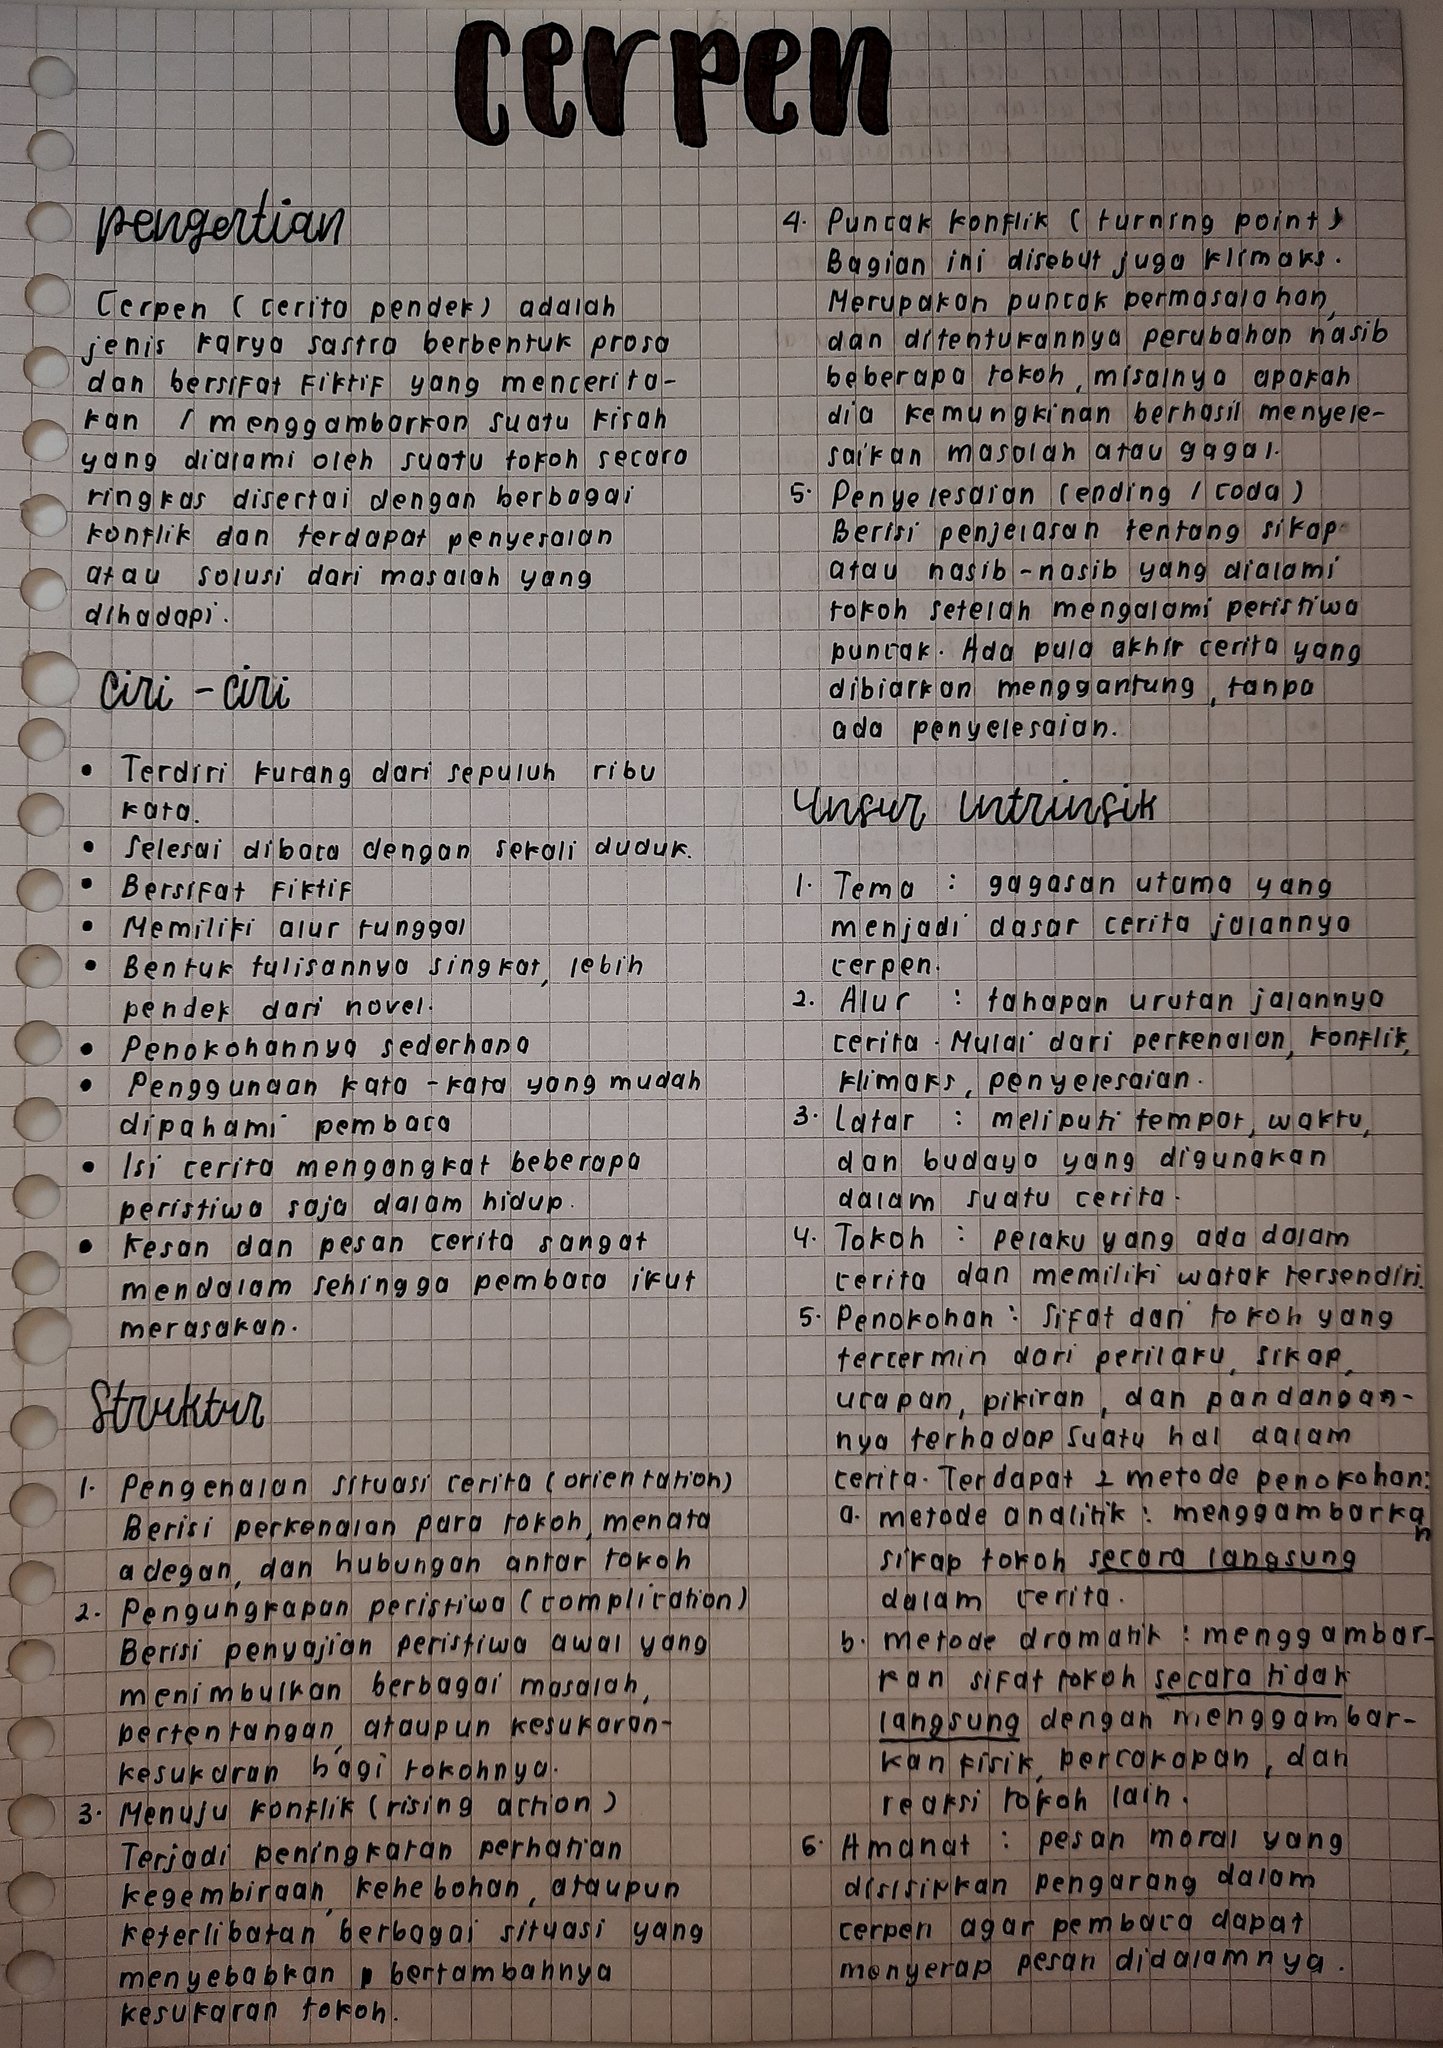 cerpen
pengertian
Cerpen (cerita pendek) adalah
jenis karya sastra berbentuk prosa
dan bersifat fiktif yang mencerita-
kan / menggambarkan suatu kisah
yang dialami oleh suatu tokoh secara
ringkas disertai dengan berbagai
konflik dan terdapat penyesaian
atau solusi dari masalah yang
dihadapi.
ciri - ciri
• Terdiri kurang dari sepuluh ribu
kata.
• Selesai dibaca dengan sekali duduk.
• Bersifat fiktif
• Memiliki alur tunggal
• Bentuk tulisannya singkat, lebih
pendek dari novel.
• Penokohannya sederhana
• Penggunaan kata - kata yang mudah
dipahami pembaca
• Isi cerita mengangkat beberapa
peristiwa saja dalam hidup.
• Kesan dan pesan cerita sangat
mendalam sehingga pembaca ikut
merasakan.
Struktur
1. Pengenalan situasi cerita (orientation)
Berisi perkenalan para tokoh, menata
adegan, dan hubungan antar tokoh
2. Pengungkapan peristiwa (complication)
Berisi penyajian peristiwa awal yang
menimbulkan berbagai masalah,
pertentangan, ataupun kesukaran-
kesukaran bagi tokohnya.
3. Menuju konflik (rising action)
Terjadi peningkatan perhatian
kegembiraan, kehebohan, ataupun
keterlibatan berbagai situasi yang
menyebabkan bertambahnya
kesukaran tokoh.
4. Puncak konflik (turning point)
Bagian ini disebut juga klimaks.
Merupakan puncak permasalahan,
dan ditentukannya perubahan nasib
beberapa tokoh, misalnya apakah
dia kemungkinan berhasil menyele-
saikan masalah atau gagal.
5. Penyelesaian (ending / coda)
Berisi penjelasan tentang sikap
atau nasib-nasib yang dialami
tokoh setelah mengalami peristiwa
puncak. Ada pula akhir cerita yang
dibiarkan menggantung, tanpa
ada penyelesaian.
Unsur intrinsik
1. Tema : gagasan utama yang
menjadi dasar cerita jalannya
cerpen.
2. Alur : tahapan urutan jalannya
cerita. Mulai dari perkenalan, konflik,
klimaks, penyelesaian.
3. Latar : meliputi tempat, waktu,
dan budaya yang digunakan
dalam suatu cerita.
4. Tokoh : pelaku yang ada dalam
cerita dan memiliki watak tersendiri.
5. Penokohan : Sifat dari tokoh yang
tercermin dari perilaku, sikap,
ucapan, pikiran, dan pandangan-
nya terhadap suatu hal dalam
cerita. Terdapat 2 metode penokohan:
a. metode analitik : menggambarkan
sikap tokoh secara langsung
dalam cerita.
b. metode dramatik : menggambar-
kan sifat tokoh secara tidak
langsung dengan menggambar-
kan fisik, percakapan, dan
reaksi tokoh lain.
6. Amanat : pesan moral yang
disisipkan pengarang dalam
cerpen agar pembaca dapat
menyerap pesan didalamnya.